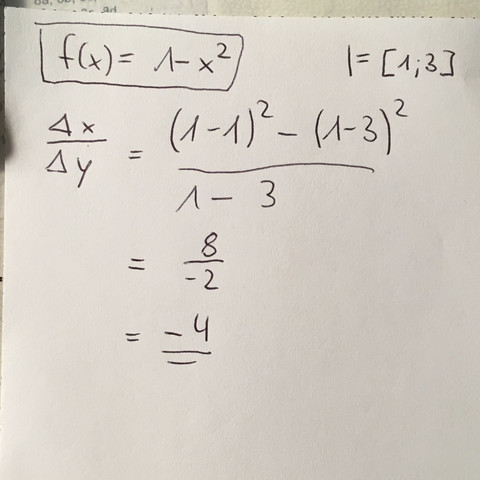 f(x) = 1-x² I = [1;3]
Δx/Δy = ((1-1)² - (1-3)²)/(1 - 3)
= 8/-2
= -4